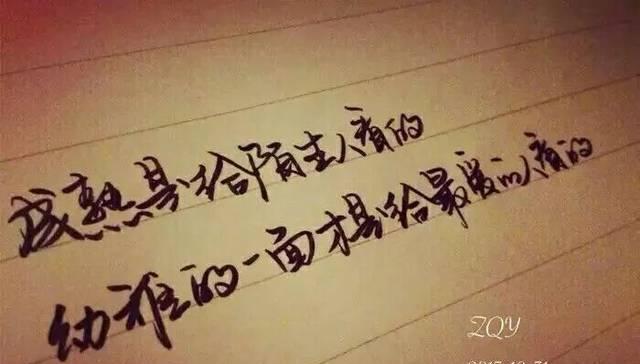 成熟是给陌生人看的
幼稚的一面才是给最爱的人看的
ZQY